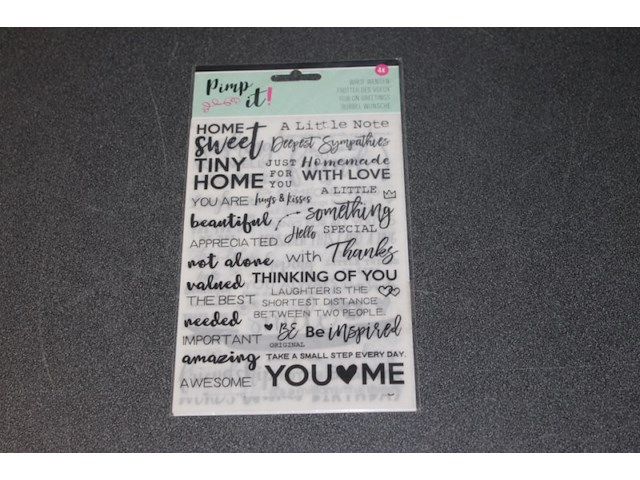 Pimp
it!
HOME
sweet
TINY
HOME
YOU ARE
beautiful
APPRECIATED
not alone
valued
THE BEST
needed
IMPORTANT
amazing
AWESOME
A Little Note
Deepest Sympathies
JUST
FOR
YOU
Homemade
WITH LOVE
hugs & kisses
A LITTLE
something
SPECIAL
Hello
with Thanks
THINKING OF YOU
LAUGHTER IS THE
SHORTEST DISTANCE
BETWEEN TWO PEOPLE.
BE
ORIGINAL
Be inspired
TAKE A SMALL STEP EVERY DAY.
YOU♥ME